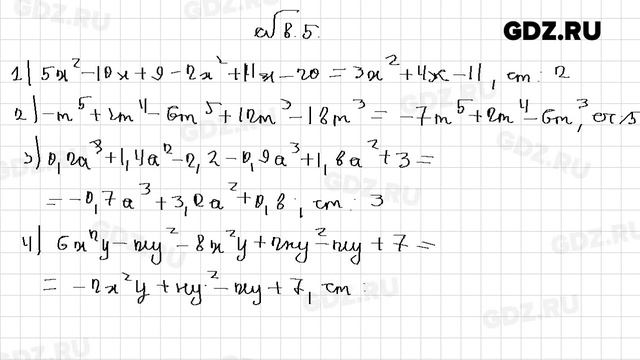 № 8.5.
GDZ.RU
1) 5x² - 10x + 9 - 2x² + 14x - 20 = 3x² + 4x - 11, ст: 2
2) -m⁵ + 2m⁴ - 6m⁵ + 12m³ - 18m³ = -7m⁵ + 2m⁴ - 6m³, ст 5
3) 0,2a³ + 1,4a² - 2,2 - 0,9a³ + 1,8a² + 3 =
= -0,7a³ + 3,2a² + 0,8; ст: 3
4) 6x²y - xy² - 8x²y + 2xy² - xy + 7 =
= -2x²y + xy² - xy + 7, ст: